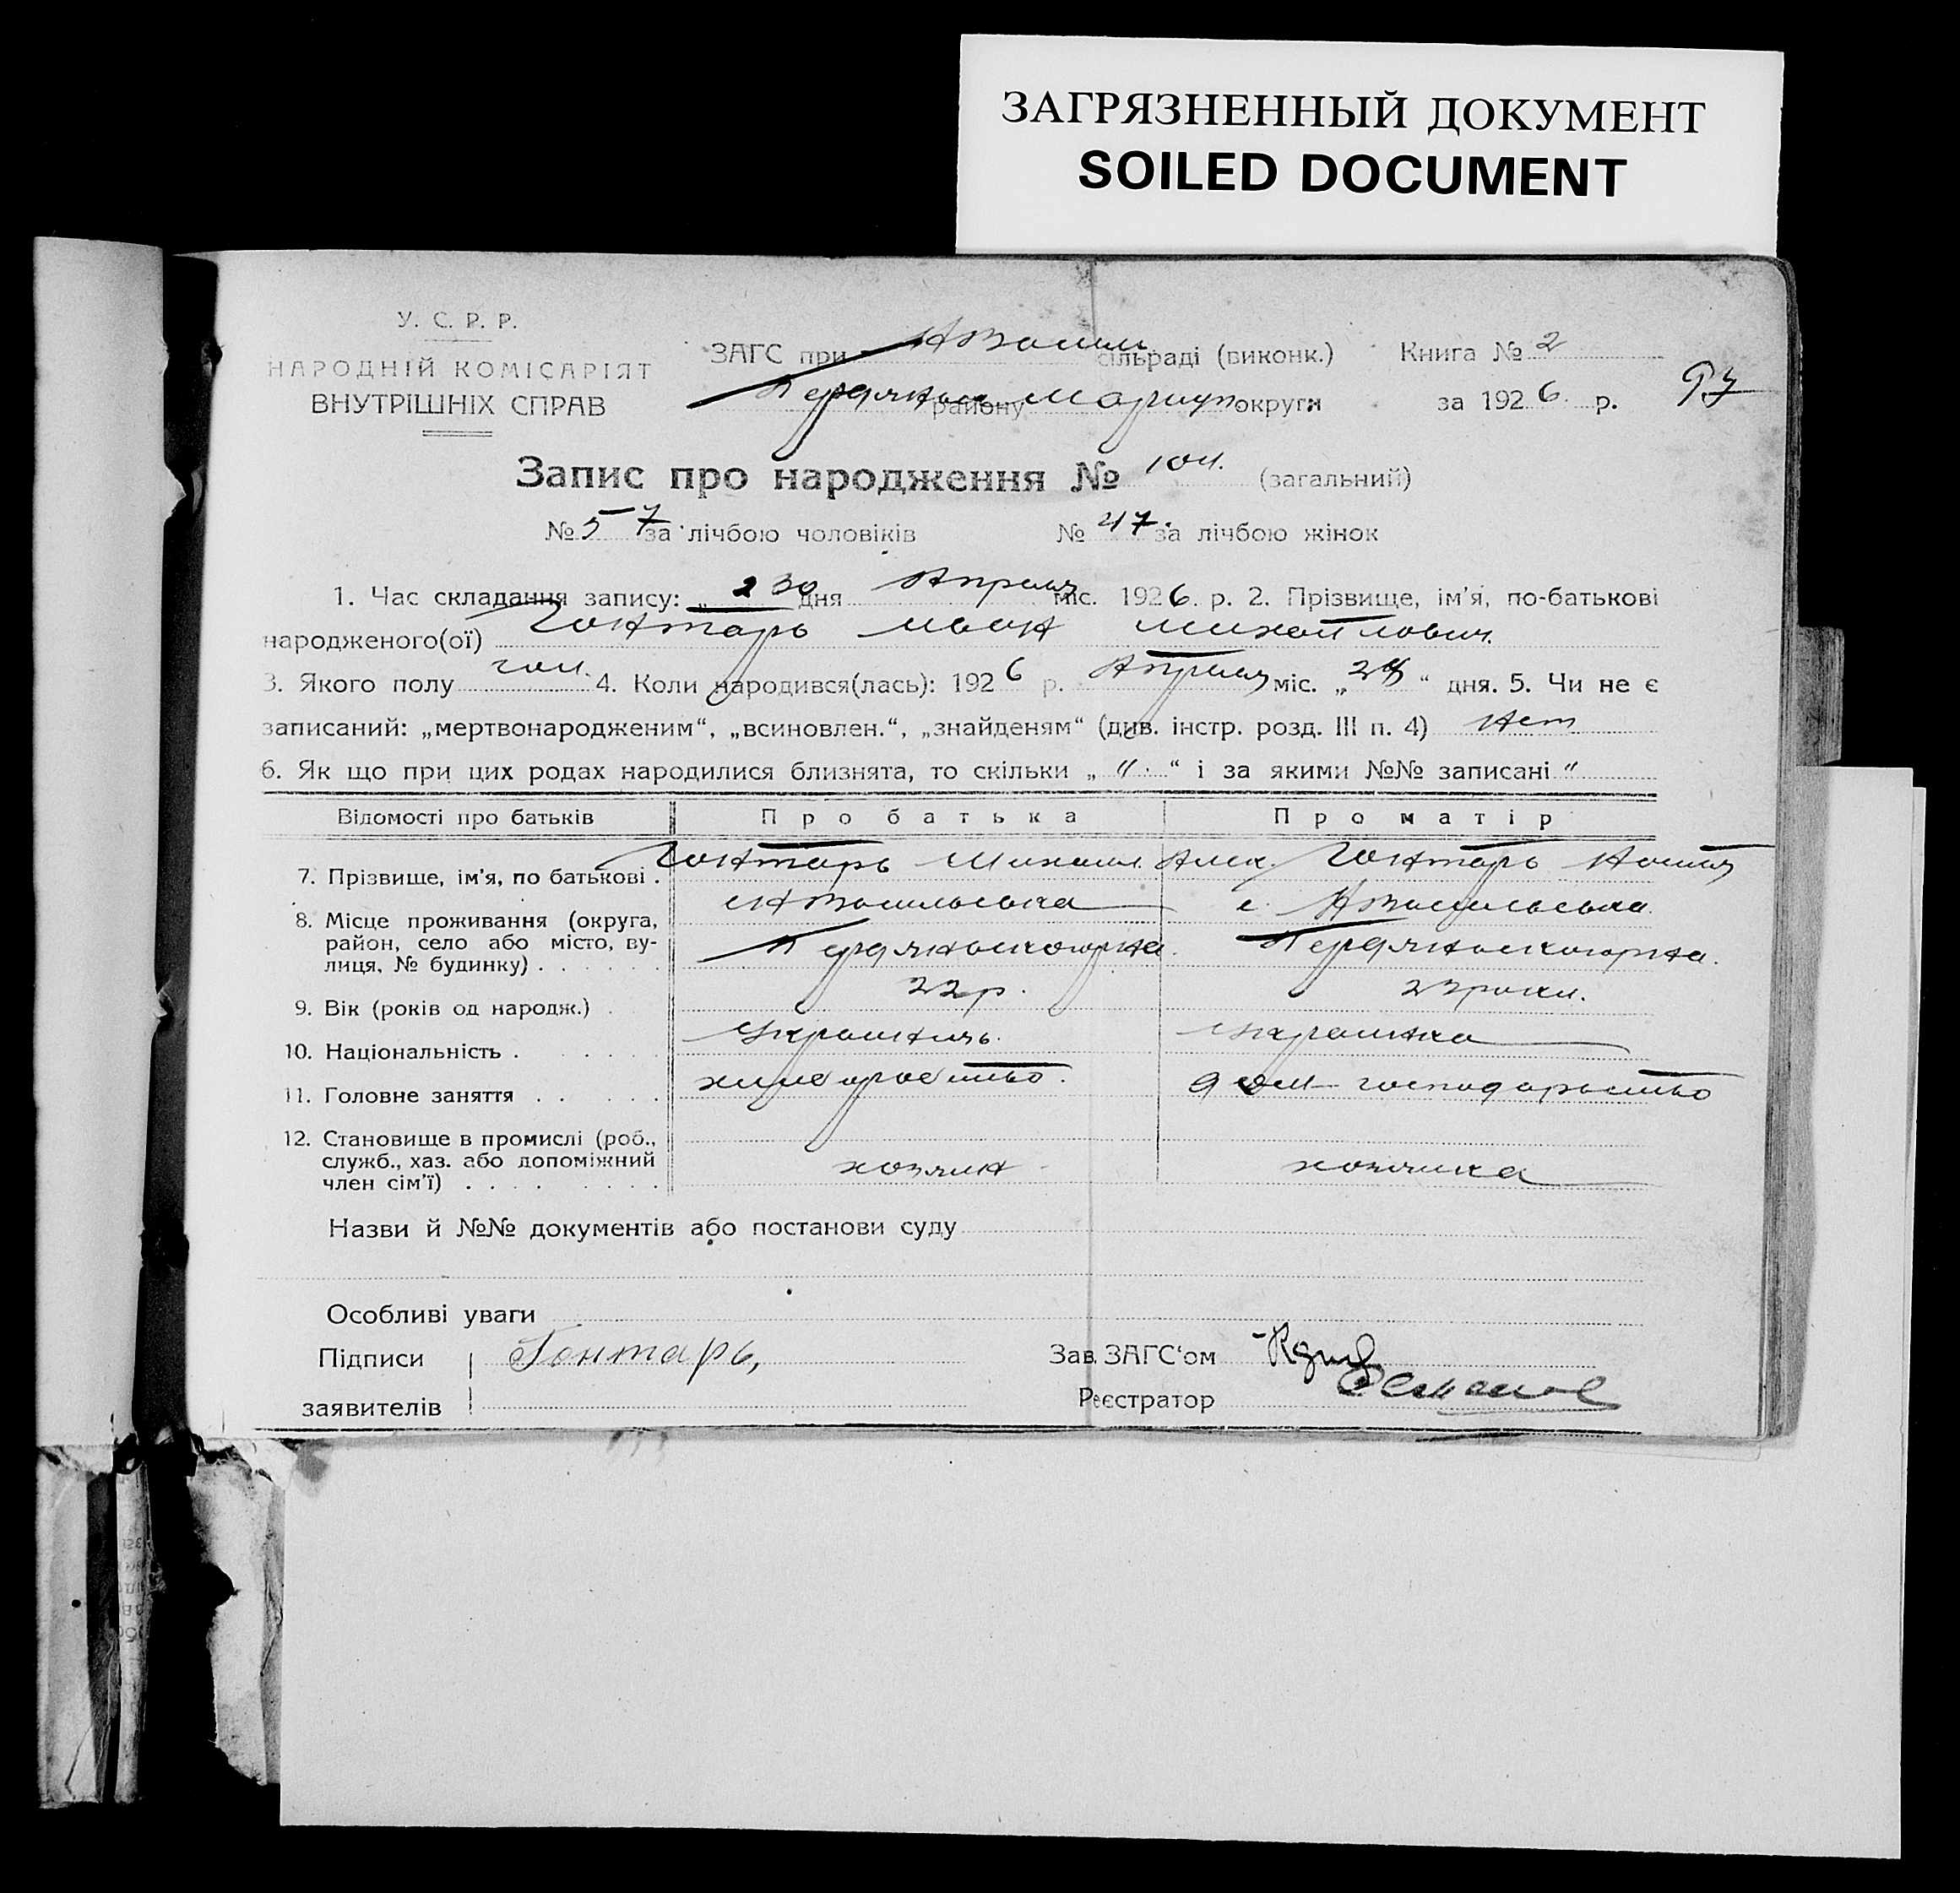 ЗАГРЯЗНЕННЫЙ ДОКУМЕНТ
SOILED DOCUMENT
У. С. Р. Р.
НАРОДНІЙ КОМІСАРІЯТ
ВНУТРІШНІХ СПРАВ
ЗАГС при сільраді (виконк.) Книга № 2
району Мариуп округи за 1926 р.
Запис про народження № 104. (загальний)
№ 57 за лічбою чоловіків № 47 за лічбою жінок
1. Час складання запису: „ 30 дня Апреля міс. 1926. р. 2. Прізвище, ім'я, по-батькові
народженого(ої) Гонтарь Иван Михайлович.
3. Якого полу чол. 4. Коли народився(лась): 1926 р. Апреля міс. „ “ дня. 5. Чи не є
записаний: „мертвонародженим“, „всиновлен.“, „знайденям“ (див. інстр. розд. III п. 4) Нет
6. Як що при цих родах народилися близнята, то скільки „ " “ і за якими №№ записані "
Відомості про батьків Про батька Про матір
7. Прізвище, ім'я, по батькові . Гонтарь Михаил Алек. Гонтарь
8. Місце проживання (округа, район, село або місто, вулиця, № будинку) . . . . . .
9. Вік (років од народж.) . 22 р. 22 роки.
10. Національність . . . . . Українець. Українка
11. Головне заняття . . . . . хліборобство. дом господарьство
12. Становище в промислі (роб., служб., хаз. або допоміжний член сім'ї) . . . . . . . . хозяин хозяйка
Назви й №№ документів або постанови суду
Особливі уваги
Підписи Гонтарь, Зав. ЗАГС'ом
заявителів Реєстратор